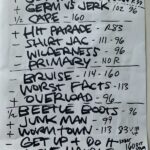 + GERM VS JERK / 102 96
½ CAPE - 160
+ HIT PARADE - R83
- SHIRT JAC - 111 - 96
- WILDERNESS - 96
- PRIMARY - NOR
- BRUISE - 114 - 160
- WORST FACTS - 113
+ OVERLOAD - 96
½ BEETLE BOOTS - 96
- JUNK MAN - 99
+ WORMTOWN - 113
GET UP + DO IT